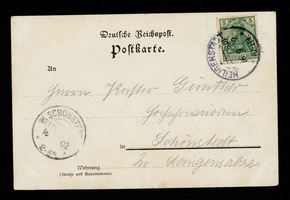 Deutsche Reichspost.
Postkarte.
An
Herrn Pastor Günther
in Schönstedt
Kr. Langensalza
Wohnung
(Straße und Hausnummer)
SCHÖNSTEDT
02
HEILIGENSTADT
5 5